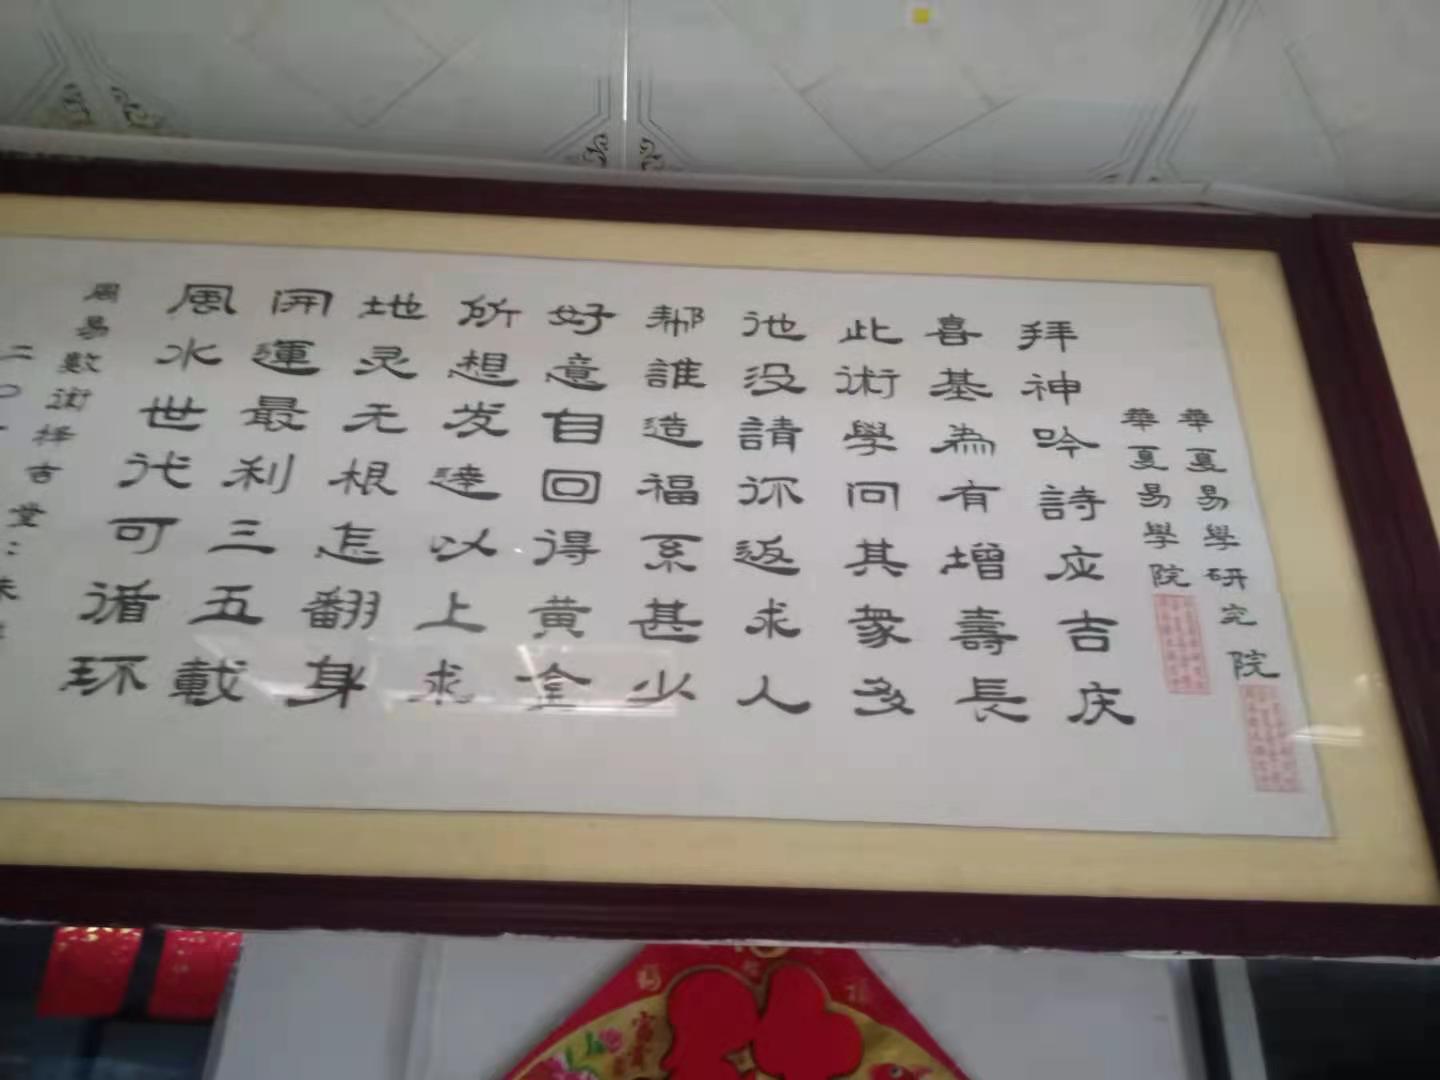 華夏易學研究院
華夏易學院
拜神吟詩应吉庆
喜基為有增壽長
此術學问其衆多
池没請你返求人
帮誰造福系甚少
好意自回得黄金
所想发達以上求
地灵无根怎翻身
開運最利三五載
風水世代可循环
周易數術择吉堂：朱
二〇一